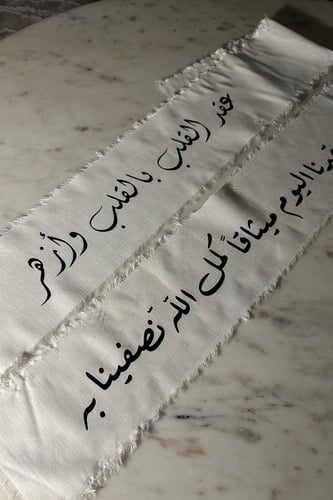 عقد القلب بالقلب وأزهر
اليوم ميثاقاً كمل الله نصفينا به